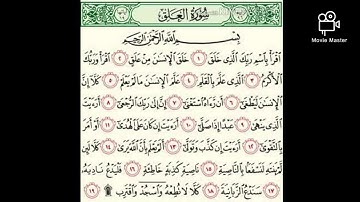 سُورَةُ العَلَقِ
بِسْمِ ٱللَّهِ ٱلرَّحْمَٰنِ ٱلرَّحِيمِ
ٱقْرَأْ بِٱسْمِ رَبِّكَ ٱلَّذِى خَلَقَ ١ خَلَقَ ٱلْإِنسَٰنَ مِنْ عَلَقٍ ٢ ٱقْرَأْ وَرَبُّكَ
ٱلْأَكْرَمُ ٣ ٱلَّذِى عَلَّمَ بِٱلْقَلَمِ ٤ عَلَّمَ ٱلْإِنسَٰنَ مَا لَمْ يَعْلَمْ ٥ كَلَّآ إِنَّ
ٱلْإِنسَٰنَ لَيَطْغَىٰٓ ٦ أَن رَّءَاهُ ٱسْتَغْنَىٰٓ ٧ إِنَّ إِلَىٰ رَبِّكَ ٱلرُّجْعَىٰٓ ٨ أَرَءَيْتَ
ٱلَّذِى يَنْهَىٰ ٩ عَبْدًا إِذَا صَلَّىٰٓ ١٠ أَرَءَيْتَ إِن كَانَ عَلَى ٱلْهُدَىٰٓ ١١ أَوْ أَمَرَ
بِٱلتَّقْوَىٰٓ ١٢ أَرَءَيْتَ إِن كَذَّبَ وَتَوَلَّىٰٓ ١٣ أَلَمْ يَعْلَم بِأَنَّ ٱللَّهَ يَرَىٰ ١٤ كَلَّا لَئِن
لَّمْ يَنتَهِ لَنَسْفَعًۢا بِٱلنَّاصِيَةِ ١٥ نَاصِيَةٍ كَٰذِبَةٍ خَاطِئَةٍ ١٦ فَلْيَدْعُ نَادِيَهُۥ
١٧ سَنَدْعُ ٱلزَّبَانِيَةَ ١٨ كَلَّا لَا تُطِعْهُ وَٱسْجُدْ وَٱقْتَرِب ۩ ١٩
Movie Master